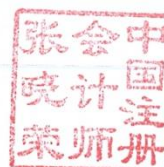 中国注册
会计师
张晓荣